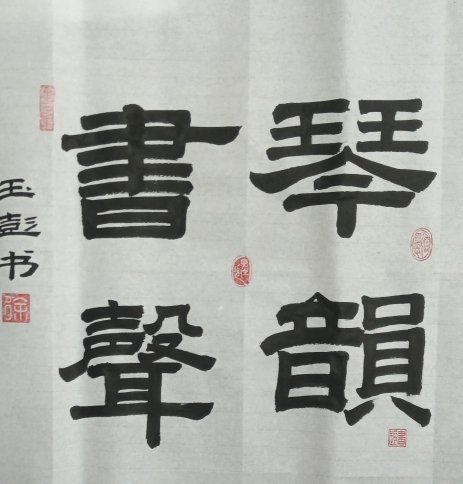 琴韻
書聲
玉彭书